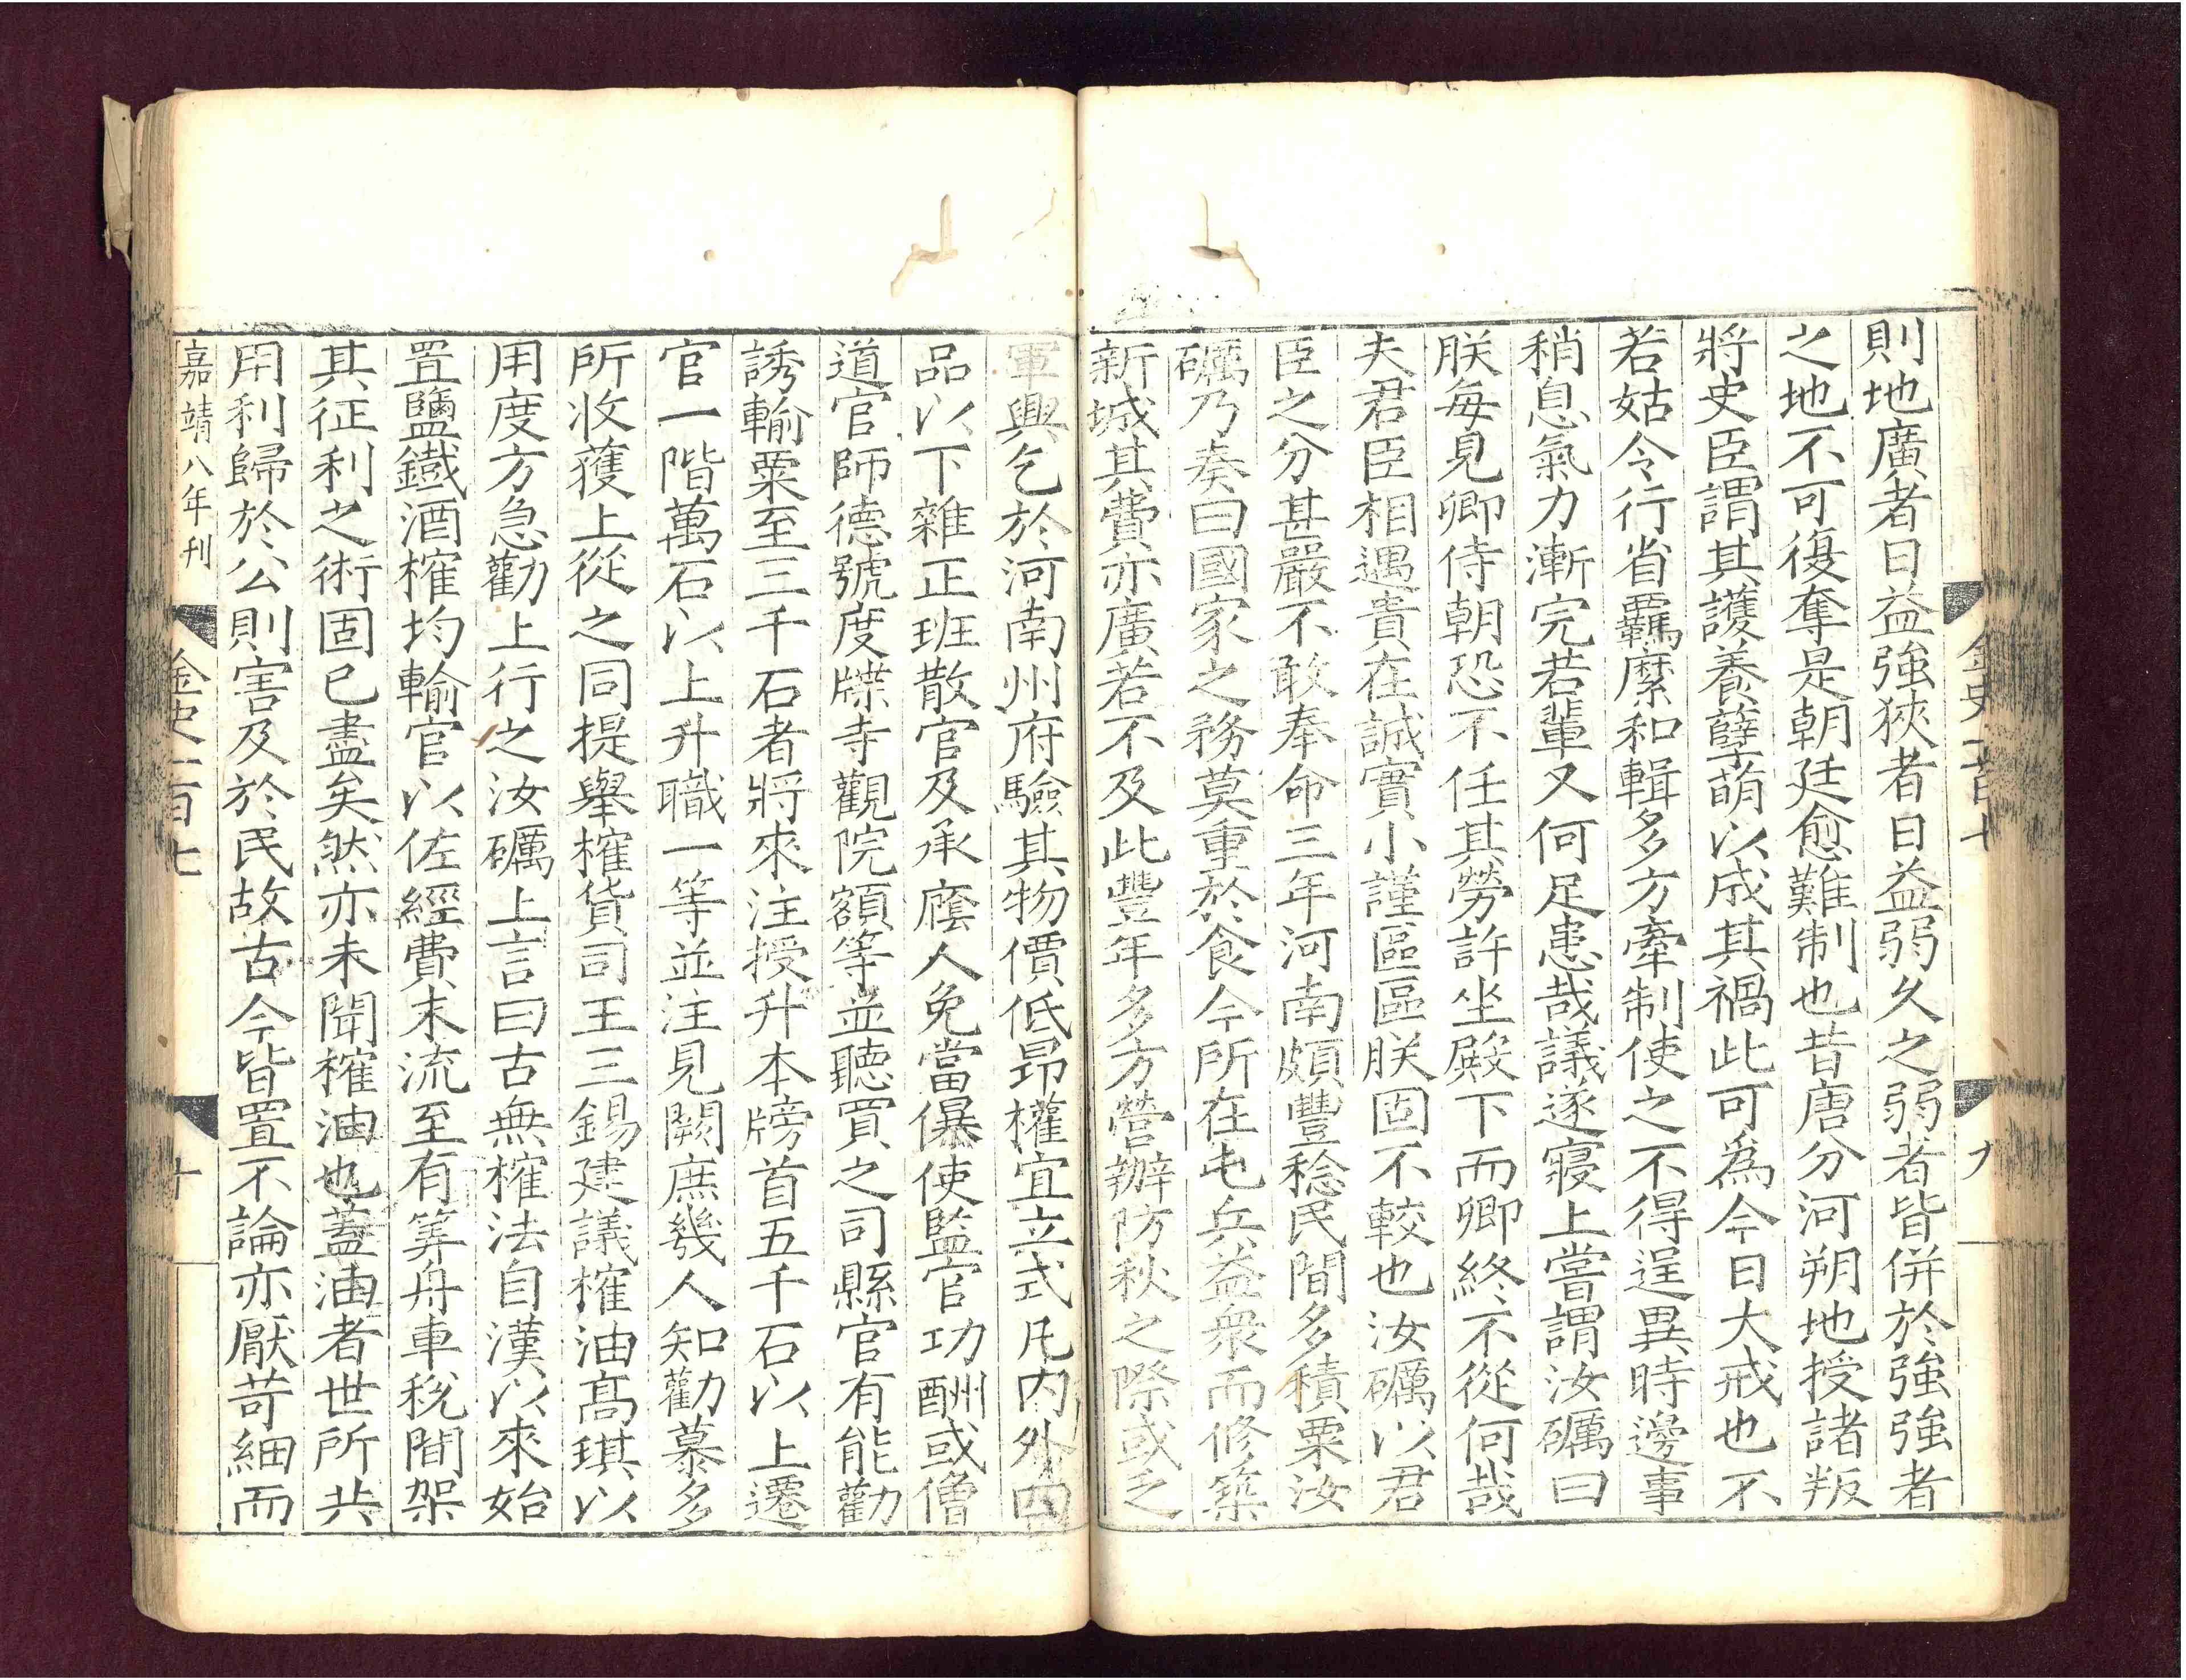 金史一百七
九
則地廣者日益強狹者日益弱久之弱者皆併於強強者
之地不可復奪是朝廷愈難制也昔唐分河朔地授諸叛
將史臣謂其護養孽萌以成其禍此可爲今日大戒也不
若姑令行省羈縻和輯多方牽制使之不得逞異時邊事
稍息氣力漸完若輩又何足患哉議遂寢上嘗謂汝礪曰
朕每見卿侍朝恐不任其勞許坐殿下而卿終不從何哉
夫君臣相遇貴在誠實小謹區區朕固不較也汝礪以君
臣之分甚嚴不敢奉命三年河南頗豐稔民間多積粟汝
礪乃奏曰國家之務莫重於食今所在屯兵益衆而修築
新城其費亦廣若不及此豐年多方營辦防秋之際或乏
軍興乞於河南州府驗其物價低昂權宜立式凡內外四
品以下雜正班散官及承廕人免當儤使監官功酬或僧
道官師德號度牒寺觀院額等並聽買之司縣官有能勸
誘輸粟至三千石者將來注授升本牓首五千石以上遷
官一階萬石以上升職一等並注見闕庶幾人知勸慕多
所收獲上從之同提舉榷貨司王三錫建議榷油高琪以
用度方急勸上行之汝礪上言曰古無榷法自漢以來始
置鹽鐵酒榷均輸官以佐經費末流至有筭舟車稅間架
其征利之術固已盡矣然亦未聞榷油也蓋油者世所共
用利歸於公則害及於民故古今皆置不論亦厭苛細而
嘉靖八年刊
金史一百七
十